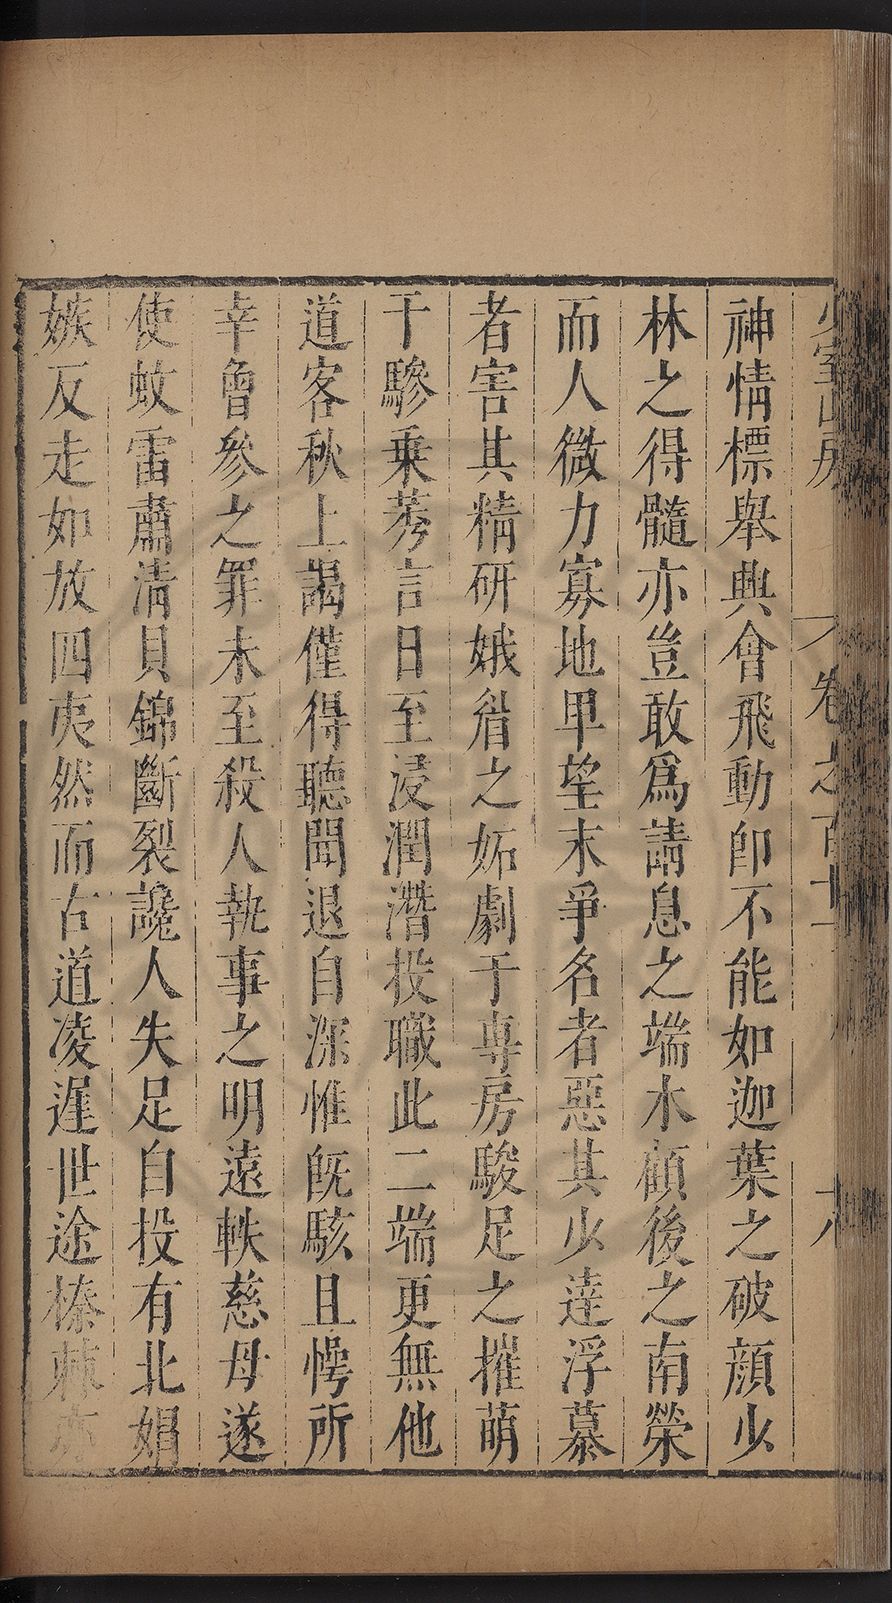 少室山房 卷之百十 六
神情標舉興會飛動卽不能如迦葉之破顔少
林之得髓亦豈敢爲請息之端木顧後之南榮
而人微力寡地卑望末爭名者惡其少達浮慕
者害其精研娥眉之妬劇于專房駿足之摧萌
于驂乗莠言日至浸潤潛投職此二端更無他
道客秋上謁僅得聽聞退自深惟旣駭且愕所
幸魯參之罪未至殺人執事之明遠軼慈母遂
使蚊雷肅淸貝錦斷裂讒人失足自投有北娼
嫉反走如放四夷然而古道凌遲世途榛棘亦